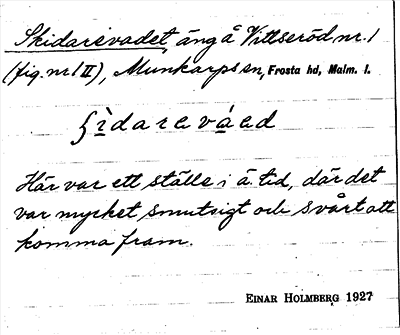 Skidarevadet, äng å Vittseröd nr. 1
(fig. nr 1 II), Munkarps sn, Frosta hd, Malm. l.
Här var ett ställe i ä. tid, där det
var mycket smutsigt och svårt att
komma fram.
EINAR HOLMBERG 1927